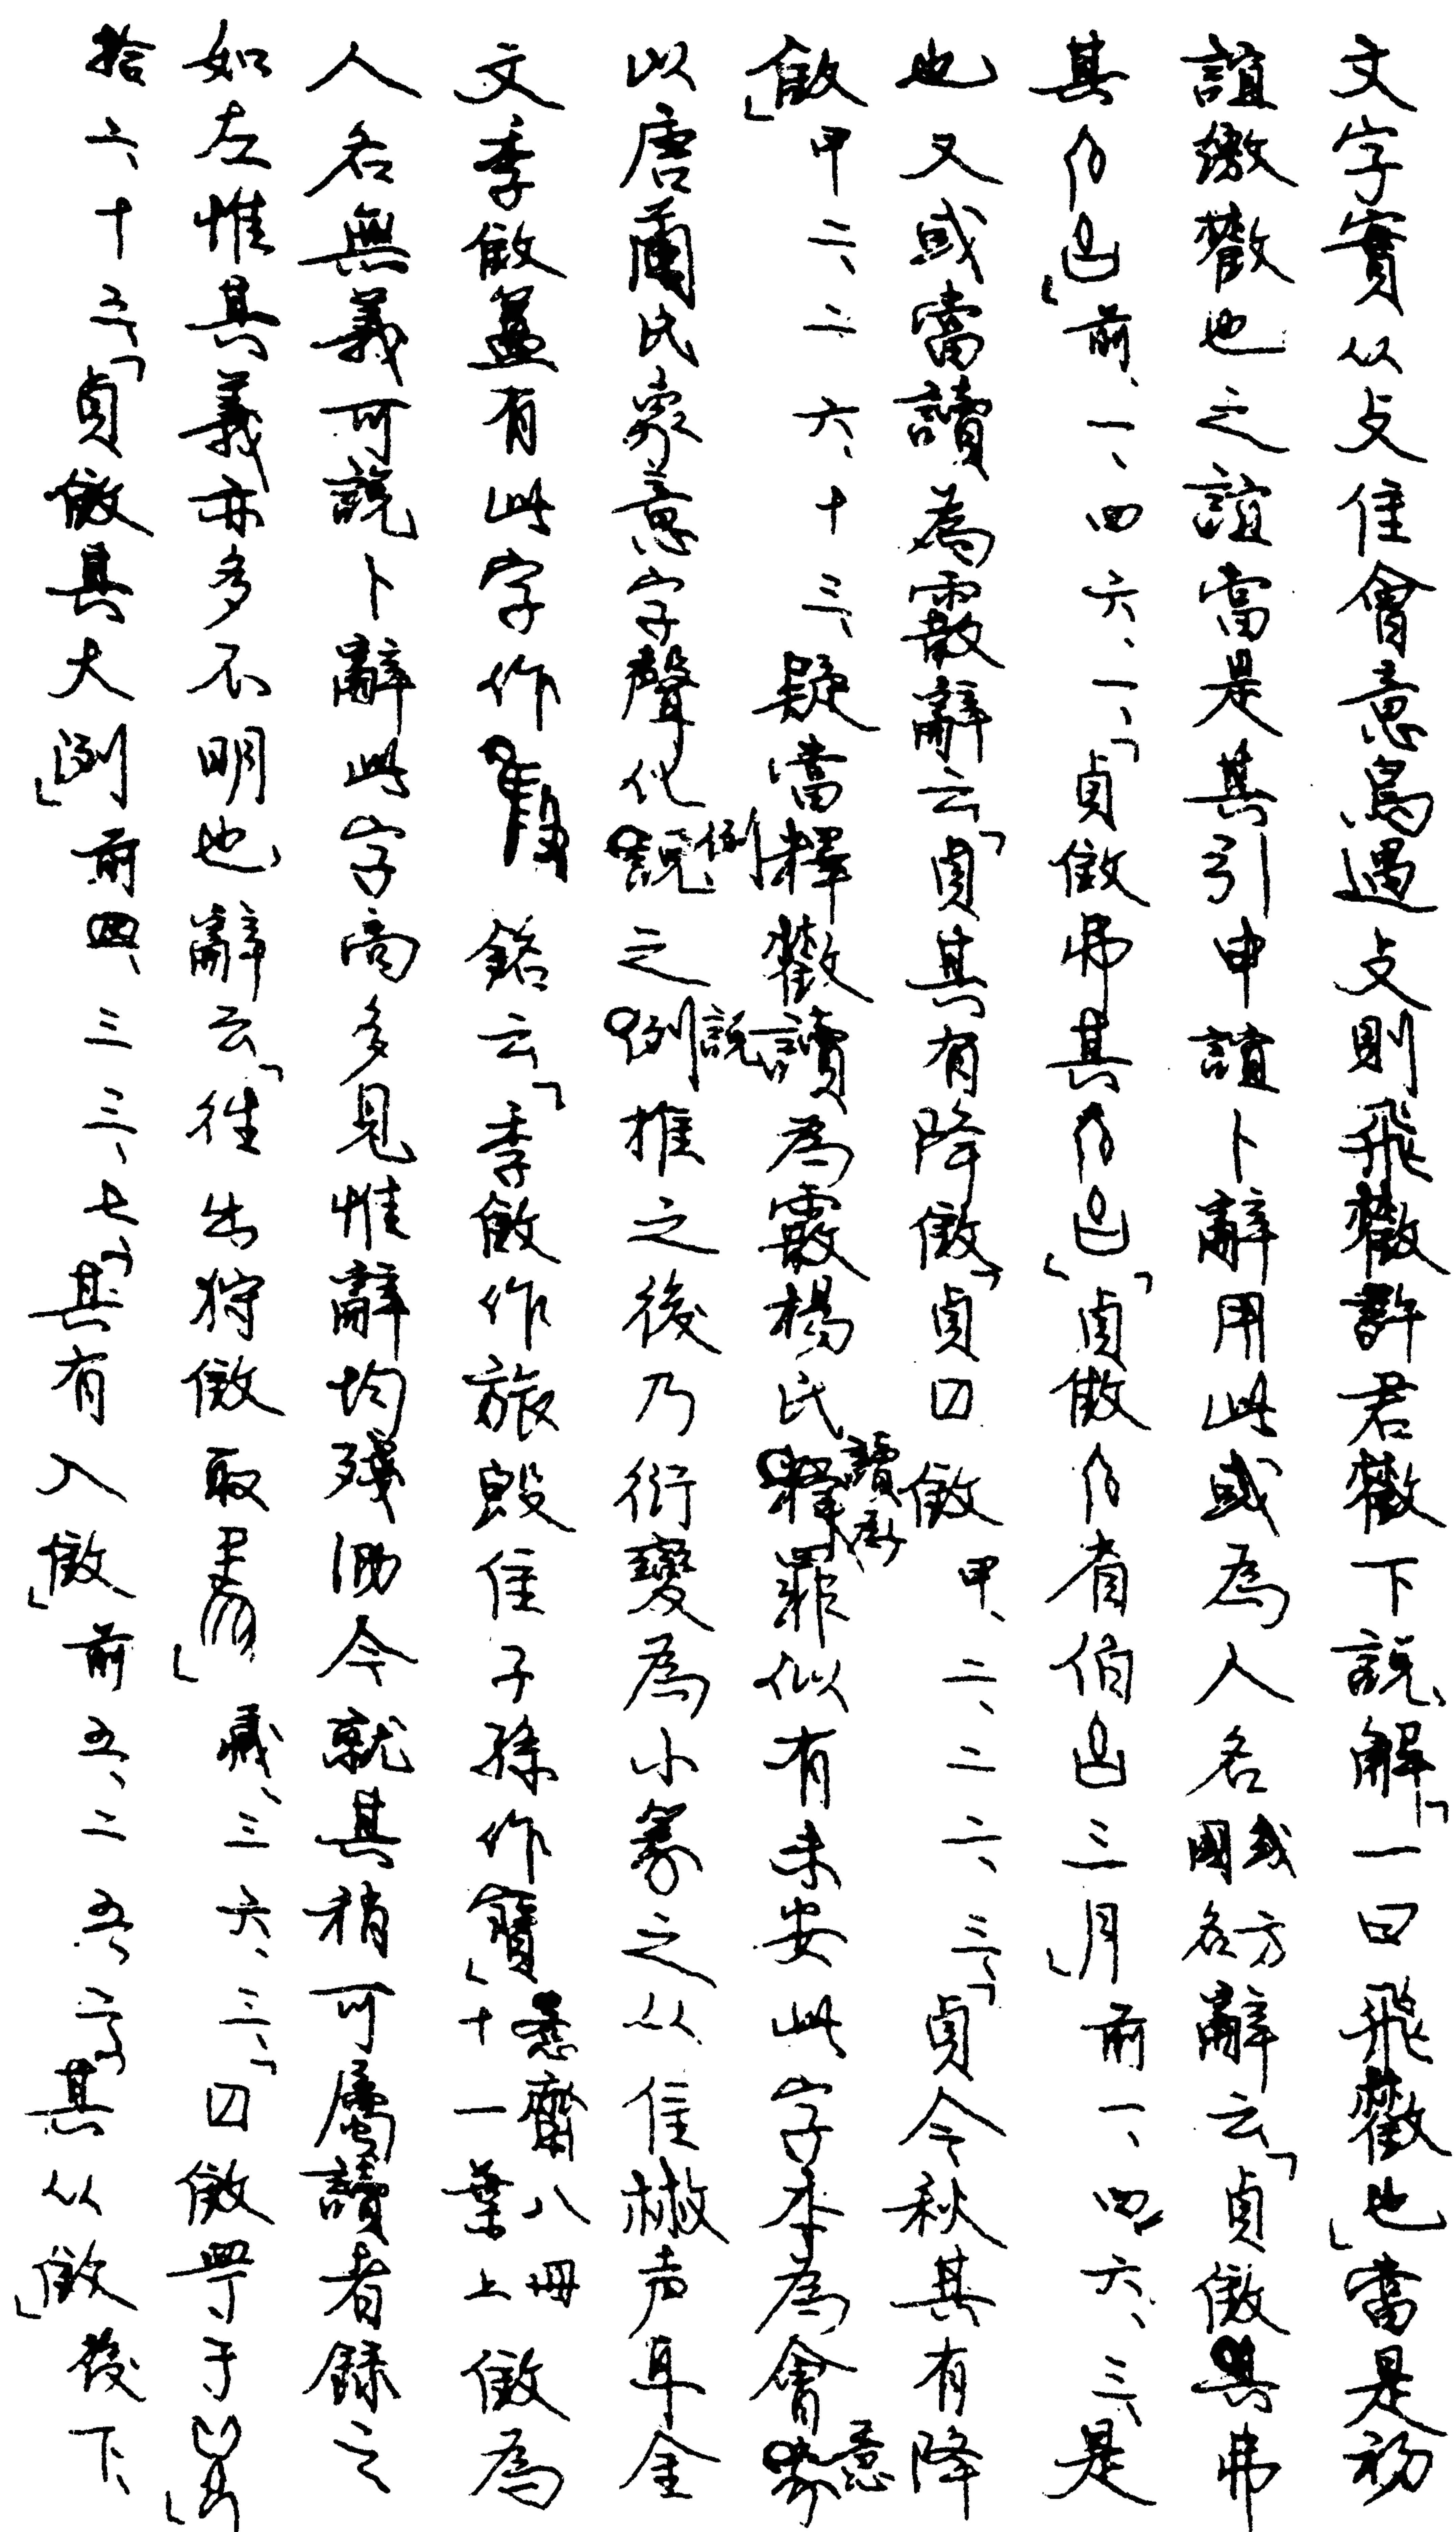 文字實从攴隹會意鳥遇攴則飛𢿱許君𢿱下說解「一曰飛𢿱也」當是初
誼繳𢿱也之誼當是其引申誼卜辭用此或為人名或方國名辭云「貞㪚其弗
其」前、一、四六、一、「貞㪚弗其」「貞㪚伯三月」前一、四六、三、是
也又或當讀為霰辭云「貞其有降㪚」貞㪚甲、二、二六、三、「貞今秋其有降
㪚」甲二、二六、十三、疑當釋𢿱讀為霰楊氏讀為罪似有未安此字本為會意
以唐蘭氏象意字聲化例說之推之後乃衍變為小篆之从隹㪔声耳金
文季㪚簋有此字作 銘云「季㪚作旅𣪘隹子孫作寶」愙齋八冊十一葉上㪚為
人名無義可說卜辭此字尚多見惟辭均殘泐今就其稍可屬讀者錄之
如左惟其義亦多不明也辭云「往出狩㪚取」藏、三六、三、「㪚于」
拾六、十三、「貞㪚其大𠛱」前四、三三、七、「其有入㪚」前五、二五、「其从㪚」後下、